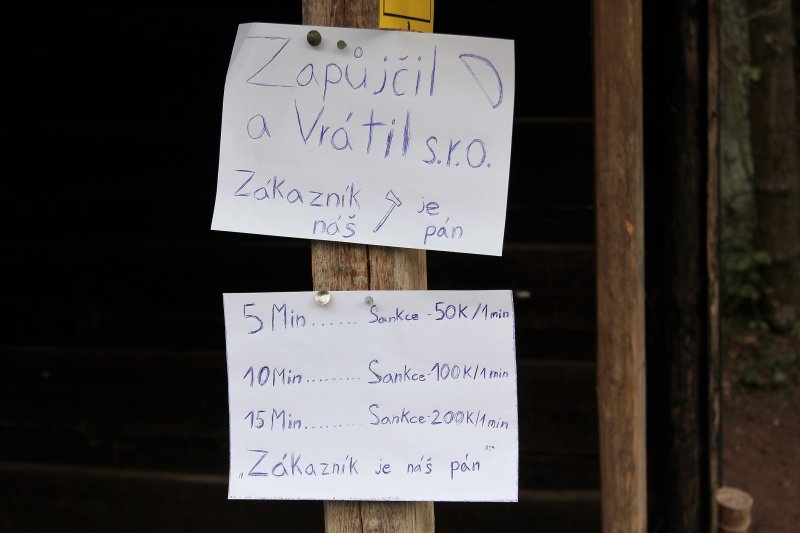 Zapůjčil
a Vrátil s.r.o.
Zákazník je
náš pán
5 Min....... Sankce - 50K/1min
10Min.......... Sankce-100K/1min
15 Min.......... Sankce-200K/1min
„Zákazník je náš pán“